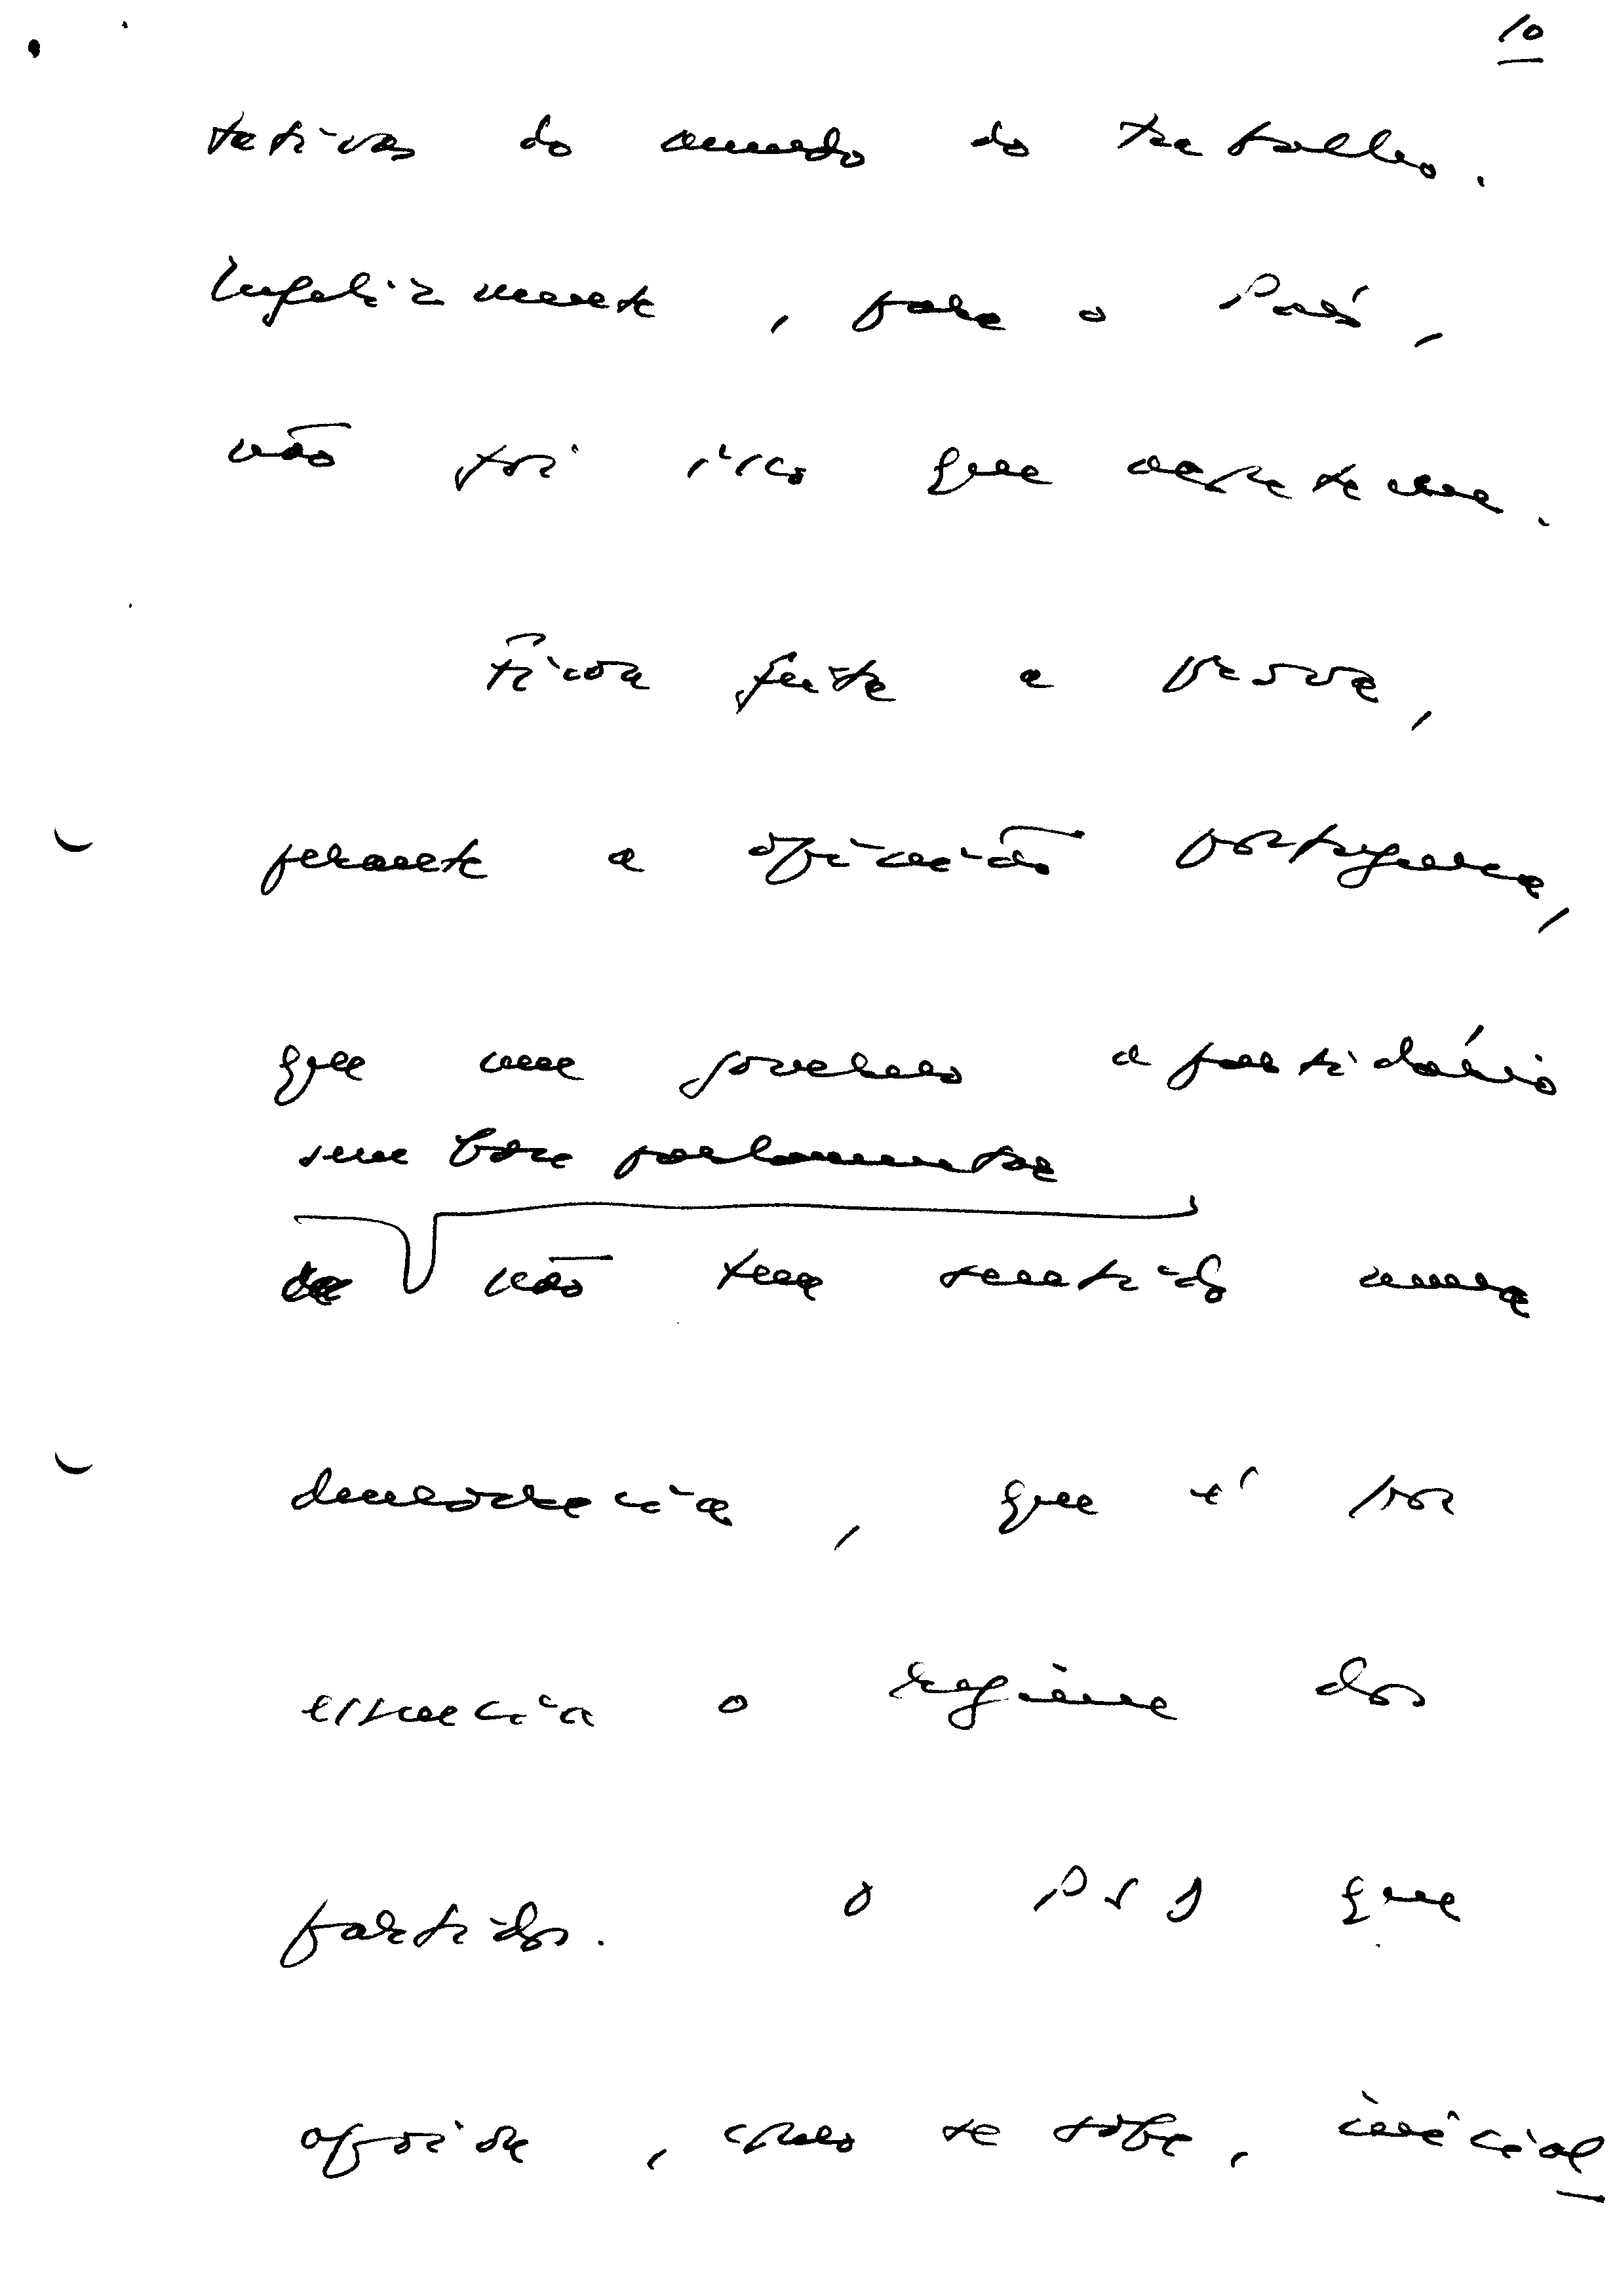 10
tativas do mundo do trabalho.
Infelizmente, para o País,
não foi isso que
Ficou feita a prova,
perante a opinião portuguesa,
que um governo apartidário
sem base parlamentar
não tem sentido numa
democracia, que é por
essência o regime dos
partidos. O PS, que
apoiou, como se sabe, inicial-